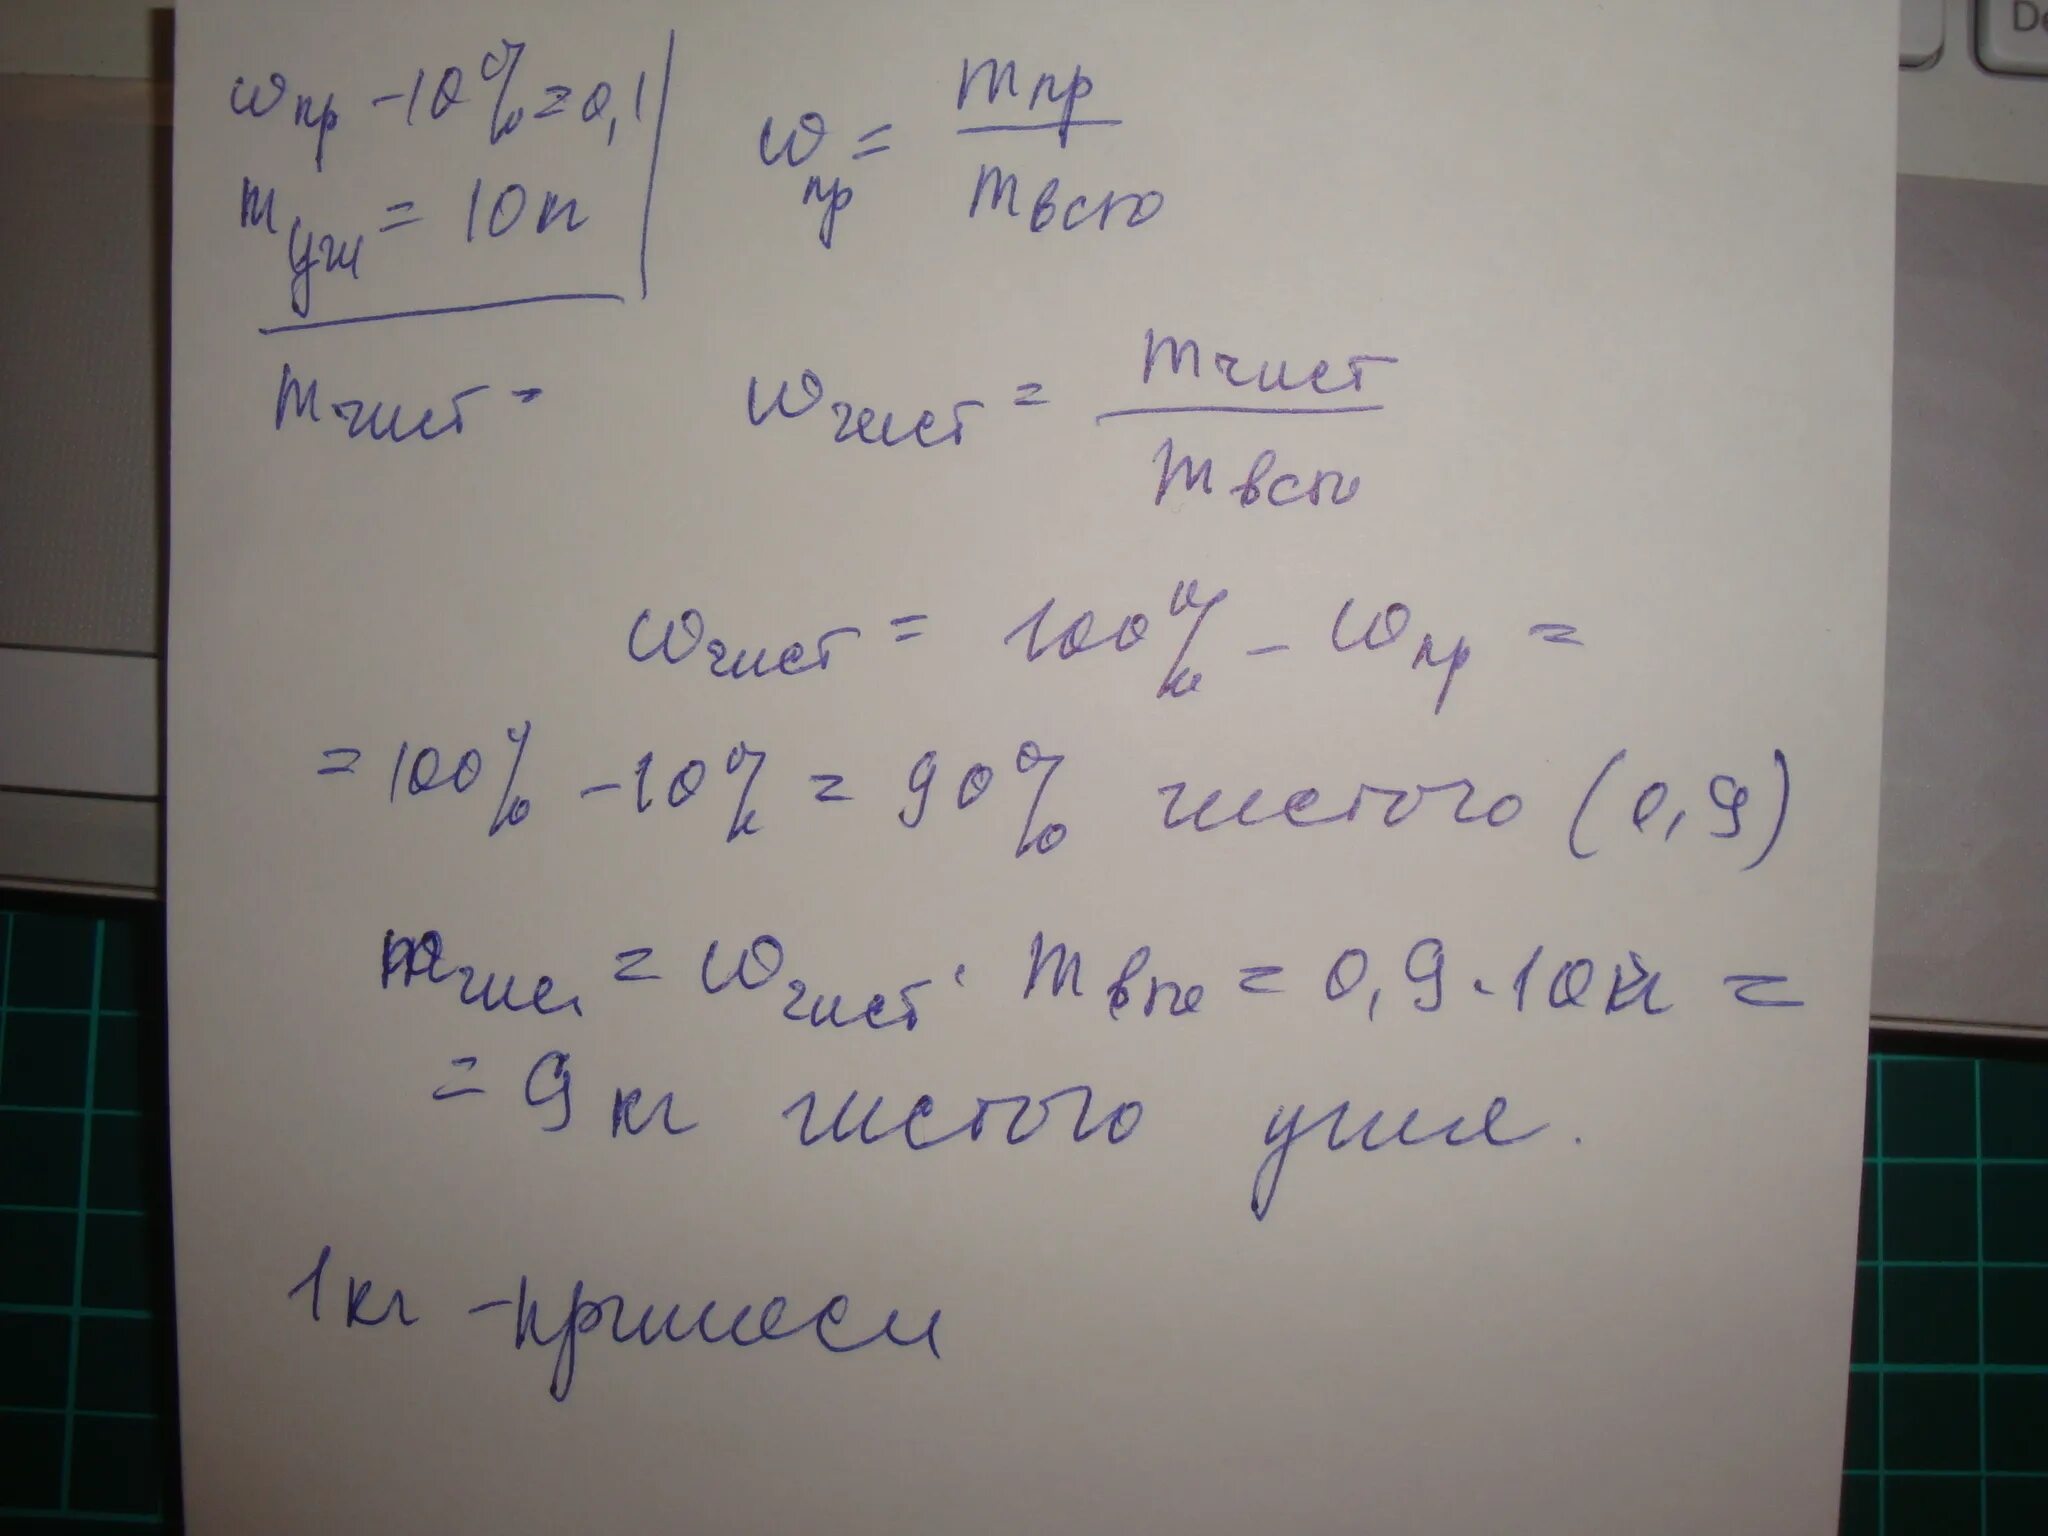 ω пр - 10% = 0,1
m угля = 10кг
m чист -
ω пр = m пр / m всего
ω чист = m чист / m всего
ω чист = 100% - ω пр =
= 100% - 10% = 90% чистого (0,9)
m чис. = ω чист · m всего = 0,9 · 10кг =
= 9 кг чистого угля.
1кг - примеси
De